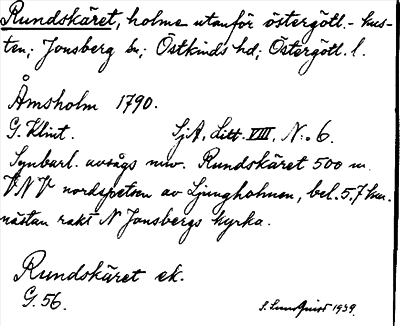 Rundskäret, holme utanför östergötl.- kus-
ten; Jonsberg sn; Östkinds hd; Östergötl. l.
Åmsholm 1790.
G. Klint. SjA. Litt. VIII. N:o 6.
Synbarl. avsågs nuv. Rundskäret 500 m
VNV nordspetsen av Ljungholmen, bel. 5,7 km.
nästan rakt N Jonsbergs kyrka.
Rundskäret ek.
G. 56. S. Lundquist 1939.